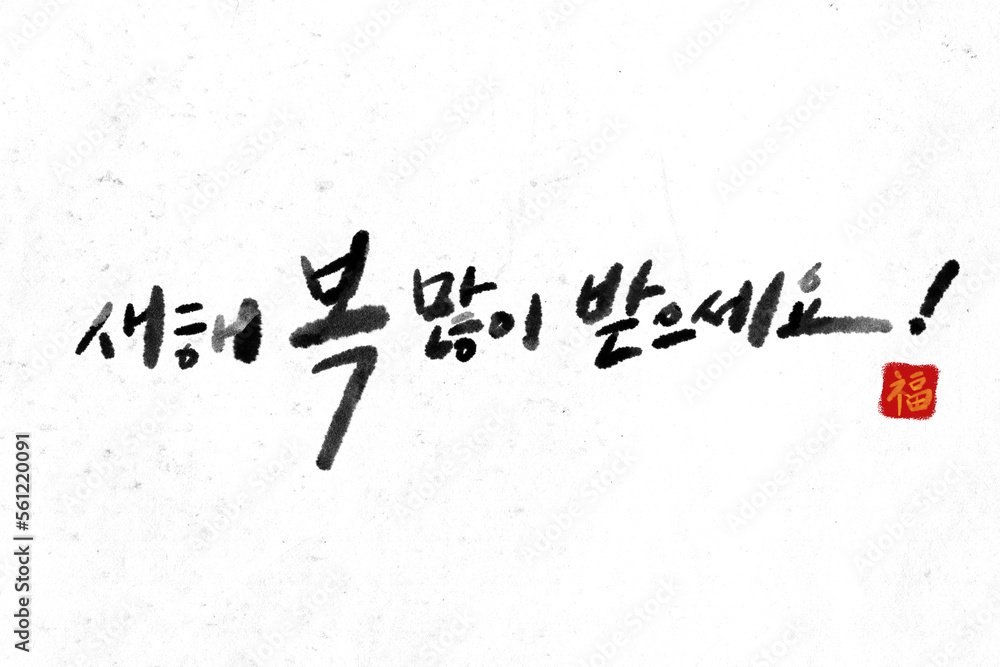 새해 복 많이 받으세요!
福
Adobe Stock | #561220091